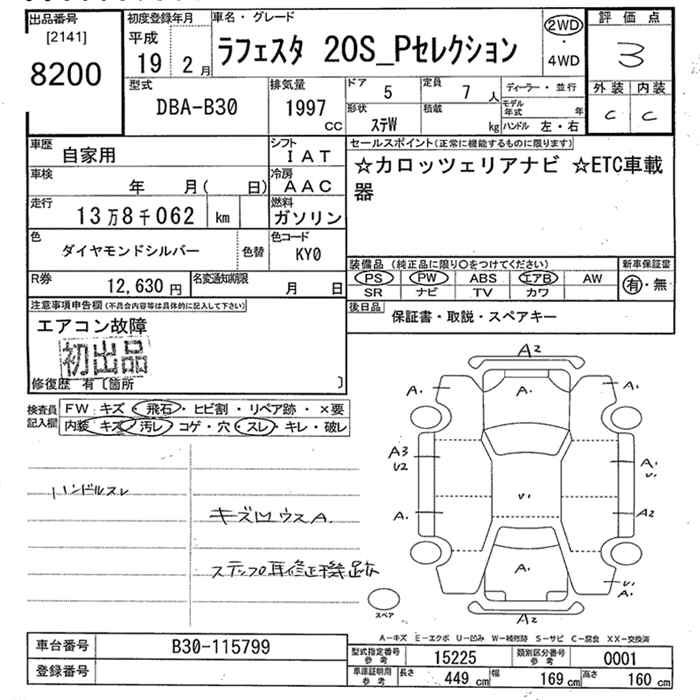 出品番号
[2141]
8200
初度登録年月
平成
19 2 月
車名・グレード
ラフェスタ 20S_Pセレクション
2WD
・
4WD
評価点
3
外装 内装
C C
型式
DBA-B30
排気量
1997
CC
ドア 5
定員 7 人
ディーラー・並行
形状 ステW
積載 kg
モデル年式 年
ハンドル 左・右
車歴 自家用
シフト IAT
車検 年 月( 日)
冷房 AAC
走行 13万8千062 km
燃料 ガソリン
色 ダイヤモンドシルバー 色替
色コード KY0
R券 12,630円
名変通知期限 月 日
セールスポイント(正常に機能するものに限ります)
☆カロッツェリアナビ ☆ETC車載
器
装備品(純正品に限り〇をつけてください)
新車保証書
PS PW ABS エアB AW
有・無
SR ナビ TV カワ
後日品
保証書・取説・スペアキー
注意事項申告欄(不具合内容等は具体的に記入して下さい)
エアコン故障
初出品
修復歴 有〔箇所 〕
検査員
記入欄
FW:キズ・飛石・ヒビ割・リペア跡・×要
内装 キズ・汚レ・コゲ・穴・スレ・キレ・破レ
ハンドルスレ
キズ凹ウスA.
ステップ耳修正機跡
A2
A.
A.
A.
A3
V2
A.
V.
A.
V.
A2
A.
V.
A
A2
スペア
A-キズ E-エクボ U-凹み W-補修跡 S-サビ C-腐食 XX-交換済
車台番号 B30-115799
登録番号
型式指定番号
参考
15225
類別区分番号
参考
0001
車庫証明用
参考
長さ 449 cm
幅 169 cm
高さ 160 cm